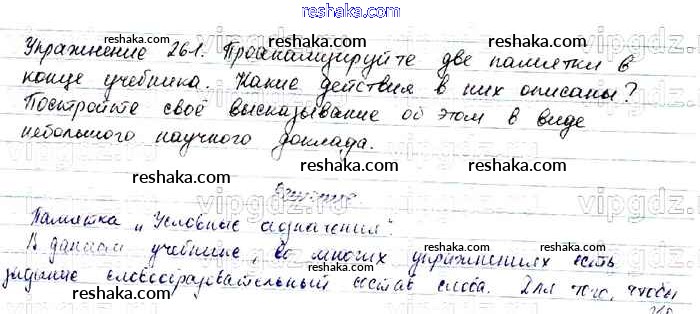 reshaka.com
Упражнение 261. Проанализируйте две памятки в
reshaka.com reshaka.com
конце учебника. Какие действия в них описаны?
Постройте своё высказывание об этом в виде
reshaka.com reshaka.com
небольшого научного доклада.
vipgdz.ru vipgdz.ru vipgdz.ru
reshaka.com reshaka.com reshaka.com
reshaka.com reshaka.com
Памятка „Условные
В данном учебнике, во многих упражнениях есть
reshaka.com reshaka.com
задание словообразовательный состав слова. Для того, чтобы
reshaka.com reshaka.com